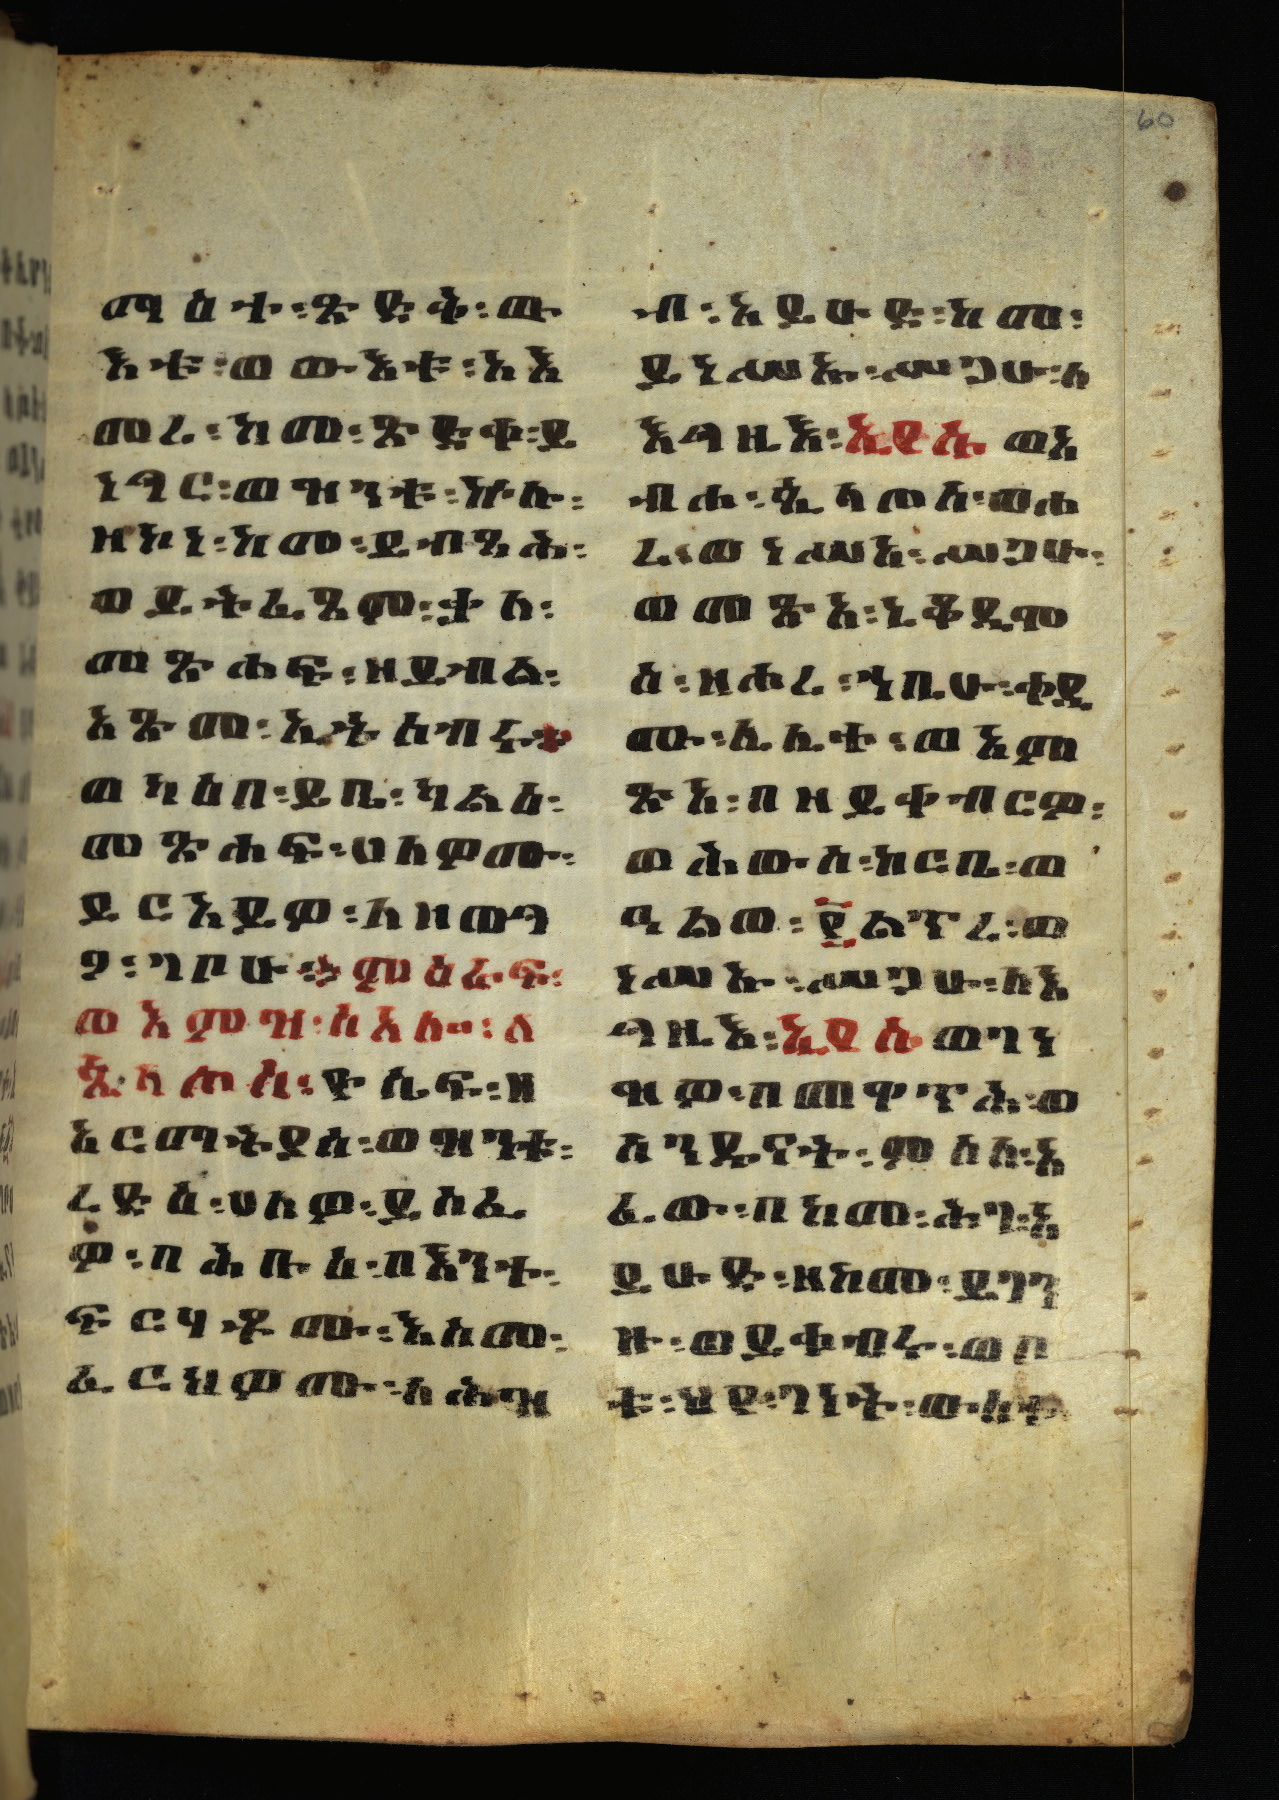 ማዕተ፡ጽድቅ፡ው
እቱ፡ወውእቱ፡አእ
መረ፡ከመ፡ጽድቀ፡ይ
ነግር፡ወዝንቱ፡ኵሉ፡
ዘኮነ፡ከመ፡ይብጻሕ፡
ወይትፈጸም፡ቃለ፡
መጽሐፍ፡ዘይብል፡
አጽመ፡ኢትስብሩ።
ወካዕበ፡ይቤ፡ካልዕ፡
መጽሐፍ፡ሀለዎሙ፡
ይርአይዎ፡ለዘወግ
ኦ፡ገቦሁ።ምዕራፍ፡
ወእምዝ፡ሰአሎ፡ለ
ጲላጦስ፡ዮሴፍ፡ዘ
አርማትያስ፡ወዝንቱ፡
ረድእ፡ሀለዎ፡ይሰፈ
ዎ፡በሕቡእ፡በእንተ፡
ፍርሃቶሙ፡እስመ፡
ፈርህዎሙ፡ለሕዝ
ብ፡አይሁድ፡ከመ፡
ይንሣእ፡ሥጋሁ፡ለ
እግዚእ፡ኢየሱ ወአ
ብሐ፡ጲላጦስ፡ወሐ
ረ፡ወነሥአ፡ሥጋሁ፡
ወመጽአ፡ኒቆዲሞ
ስ፡ዘሐረ፡ኀቤሁ፡ቀዲ
ሙ፡ሌሊተ፡ወአም
ጽአ፡በዘይቀብርዎ፡
ወሐወሰ፡ከርቤ፡ወ
ዓልወ፡፻ልጥረ፡ወ
ነሥኡ፡ሥጋሁ፡ለእ
ግዚእ፡ኢየሱ ወገነ
ዝዎ፡በመዋጥሕ፡ወ
ሰንዱናት፡ምስለ፡አ
ፈው፡በከመ፡ሕገ፡አ
ይሁድ፡ዘከመ፡ይገን
ዙ፡ወይቀብሩ፡ወቦ
ቱ፡ህየ፡ገነት፡ውስተ